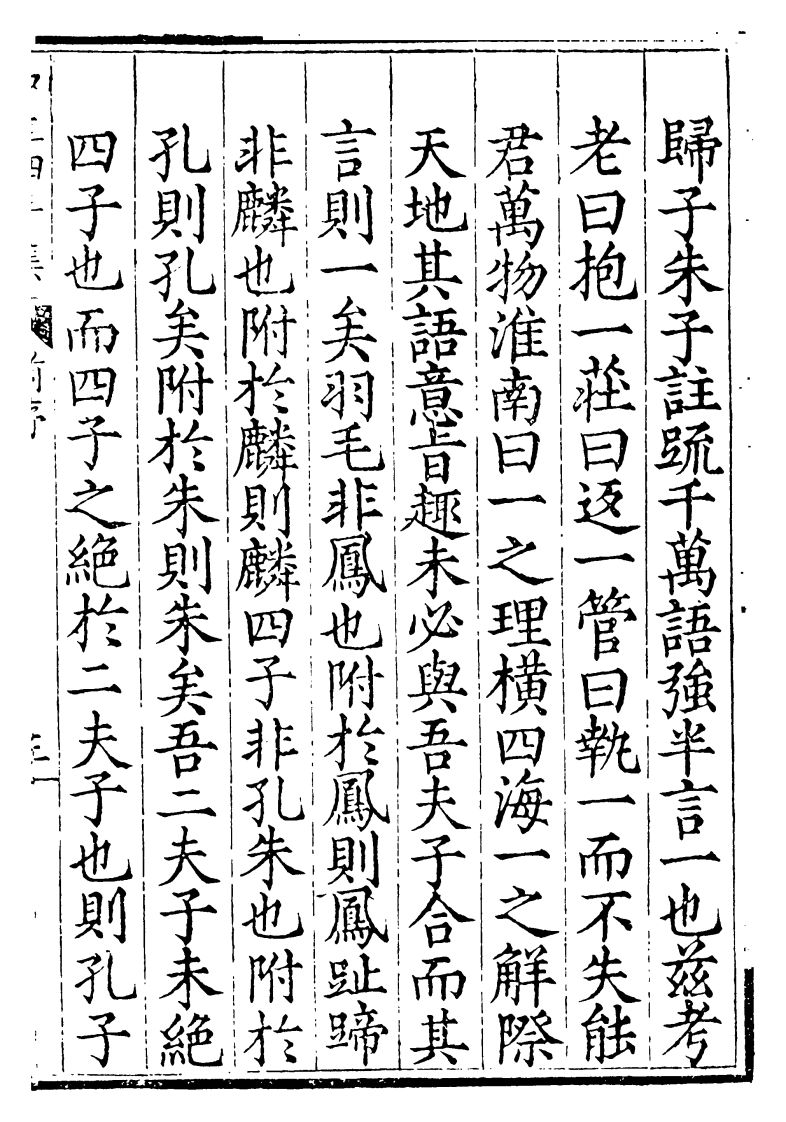 歸子朱子註䟽千萬語強半言一也茲考
老曰抱一莊曰返一管曰執一而不失能
君萬物淮南曰一之理橫四海一之解際
天地其語意旨趣未必與吾夫子合而其
言則一矣羽毛非鳳也附於鳳則鳳趾蹄
非麟也附於麟則麟四子非孔朱也附於
孔則孔矣附於朱則朱矣吾二夫子未絕
四子也而四子之絕於二夫子也則孔子